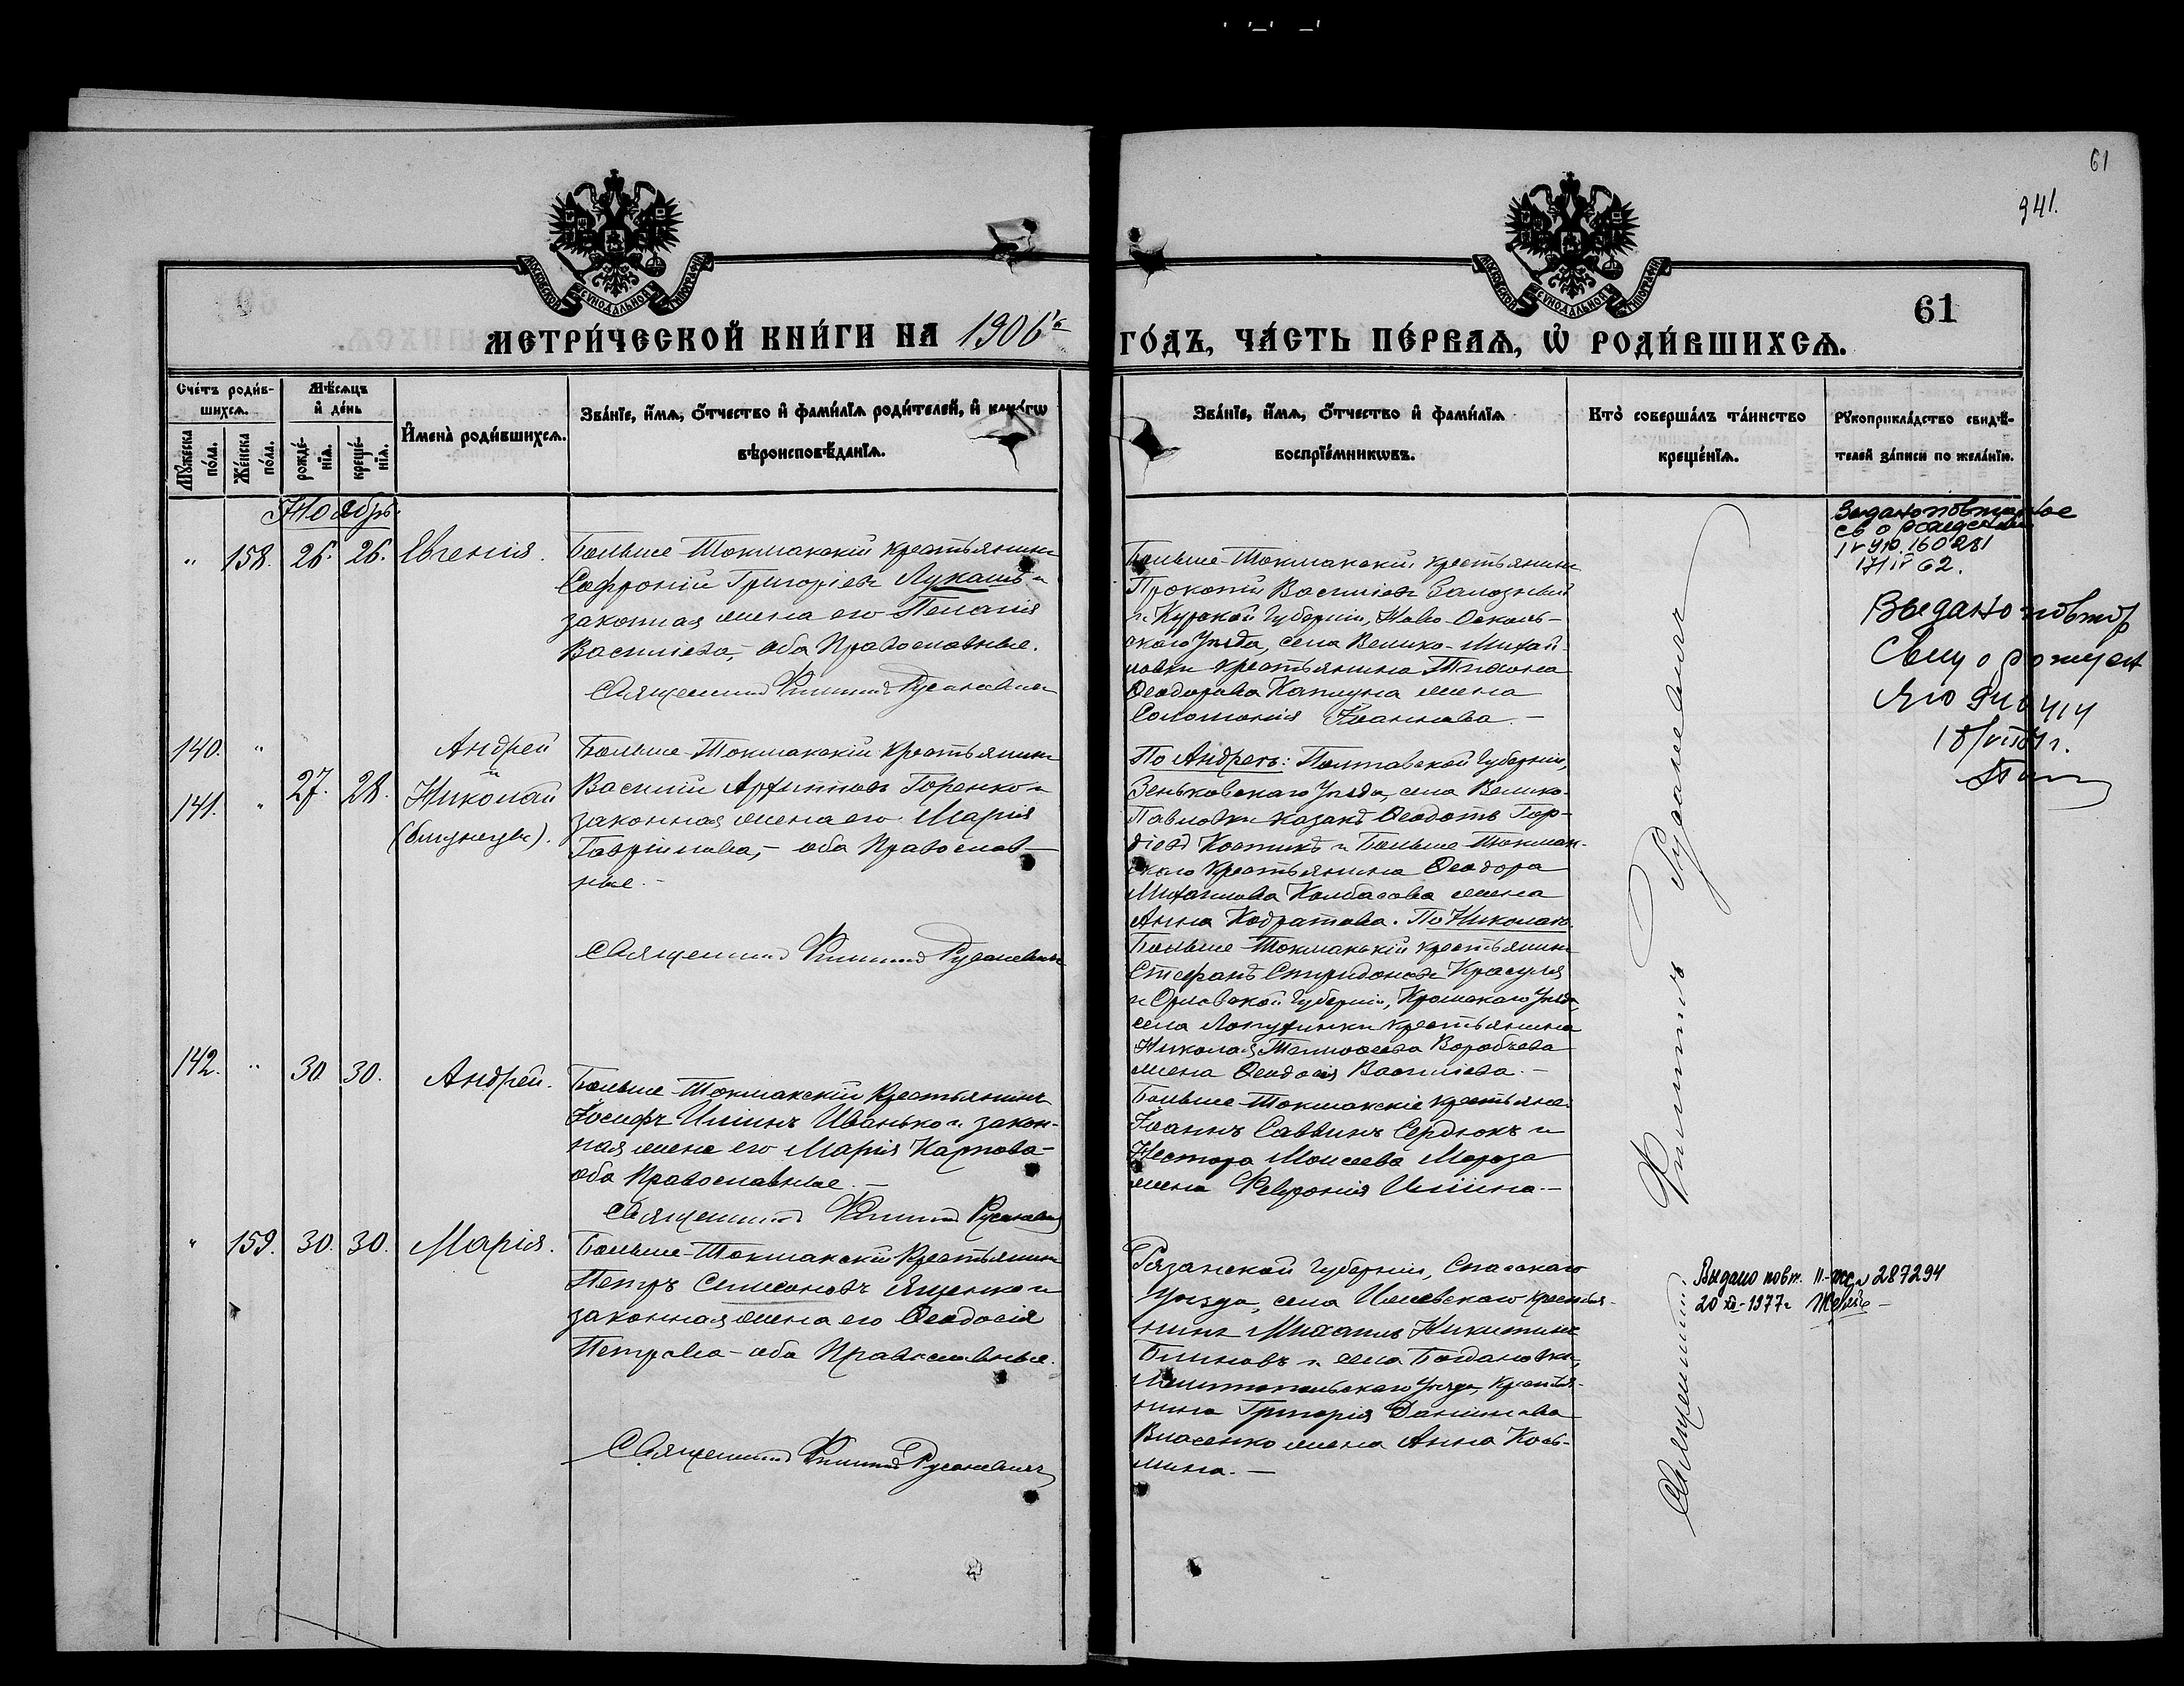 61
941.
МОСКОВСКОЙ СѴНОДАЛЬНОЙ ТИПОГРАФІИ
МОСКОВСКОЙ СѴНОДАЛЬНОЙ ТИПОГРАФІИ
61
МЕТРИ́ЧЕСКОЙ КНИ́ГИ НА 1906й
ГО́ДЪ, ЧА́СТЬ ПЕ́РВАѦ, Ѡ҆ РОДИ́ВШИХСѦ.
Сче́тъ роди́в-
шихсѧ.
Мꙋ́жеска по́ла.
Же́нска по́ла.
Мѣ́сѧцъ
и҆ де́нь
рожде́-
нїѧ.
креще́-
нїѧ.
И҆мена̀ роди́вшихсѧ.
Зва́нїе, и҆́мѧ, ѻ҆́тчество и҆ фами́лїѧ роди́телей, и҆ како́гѡ
вѣроисповѣ́данїѧ.
Зва́нїе, и҆́мѧ, ѻ҆́тчество и҆ фами́лїѧ
воспрїе́мникѡвъ.
Кто̀ соверша́лъ та́инство
креще́нїѧ.
Рꙋкоприкла́дство свидѣ́-
телей за́писи по жела́нїю.
Ноябрь.
" 158. 26. 26. Евгенія.
Больше-Токмакскій крестьянинъ
Софроній Григоріевъ Лукашъ и
законная жена его Пелагія
Василіева, оба Православные.
Священникъ Филиппъ Русаневичъ
Больше-Токмакскій крестьянинъ
Прокопій Василіевъ Залозный
и Курской Губерніи, Ново-Осколь-
скаго Уѣзда, села Велико-Михай-
ловки крестьянина Тихона
Ѳеодорова Каплуна жена
Соломонія Іоаннова. –
140. "
141. "
27. 28.
Андрей
и
Николай
(близнецы).
Больше-Токмакскій крестьянинъ
Василій Архиповъ Горенко и
законная жена его Марія
Гавріилова, – оба Православ-
ные. –
Священникъ Филиппъ Русаневичъ
По Андреѣ: Полтавской Губерніи,
Зеньковскаго Уѣзда, села Велико-
Павловки казакъ Ѳеодотъ Гор-
діевъ Костикъ и Больше-Токмак-
скаго крестьянина Ѳеодора
Михаилова Колбасова жена
Анна Кодратова. По Николаѣ.
Больше-Токмакскій крестьянинъ
Стефанъ Спиридоновъ Красуля
и Орловской Губерніи, Кромскаго Уѣзда,
села Лопухинки крестьянина
Николая Тимоѳеева Воробьева
жена Ѳеодосія Василіева. –
142. " 30. 30. Андрей.
Больше-Токмакскій крестьянинъ
Іосифъ Иліинъ Иванько и закон-
ная жена его Марія Карпова –
оба Православные. –
Священникъ Филиппъ Русаневичъ
Больше-Токмакскіе крестьяне:
Іоаннъ Саввинъ Сердюкъ и
Нестора Моисеева Мороза
жена Февронія Иліина. –
" 159. 30. 30. Марія.
Больше-Токмакскій крестьянинъ
Петръ Симеоновъ Яценко и
законная жена его Ѳеодосія
Петрова – оба Православные.
Священникъ Филиппъ Русаневичъ
Рязанской Губерніи, Спасскаго
Уѣзда, села крестья-
нинъ Михаилъ Никитинъ
Блиновъ и села Богдановки,
Мелитопольскаго Уѣзда, крестья-
нина Григорія Даніилова
Власенко жена Анна Козь-
мина. –
Священникъ Филиппъ Русаневичъ
Выдано повторное
св о рожден
160281
62.
Выдано повтор
Свид о рожден
Выдано повт. 287294
20 XII-1977г